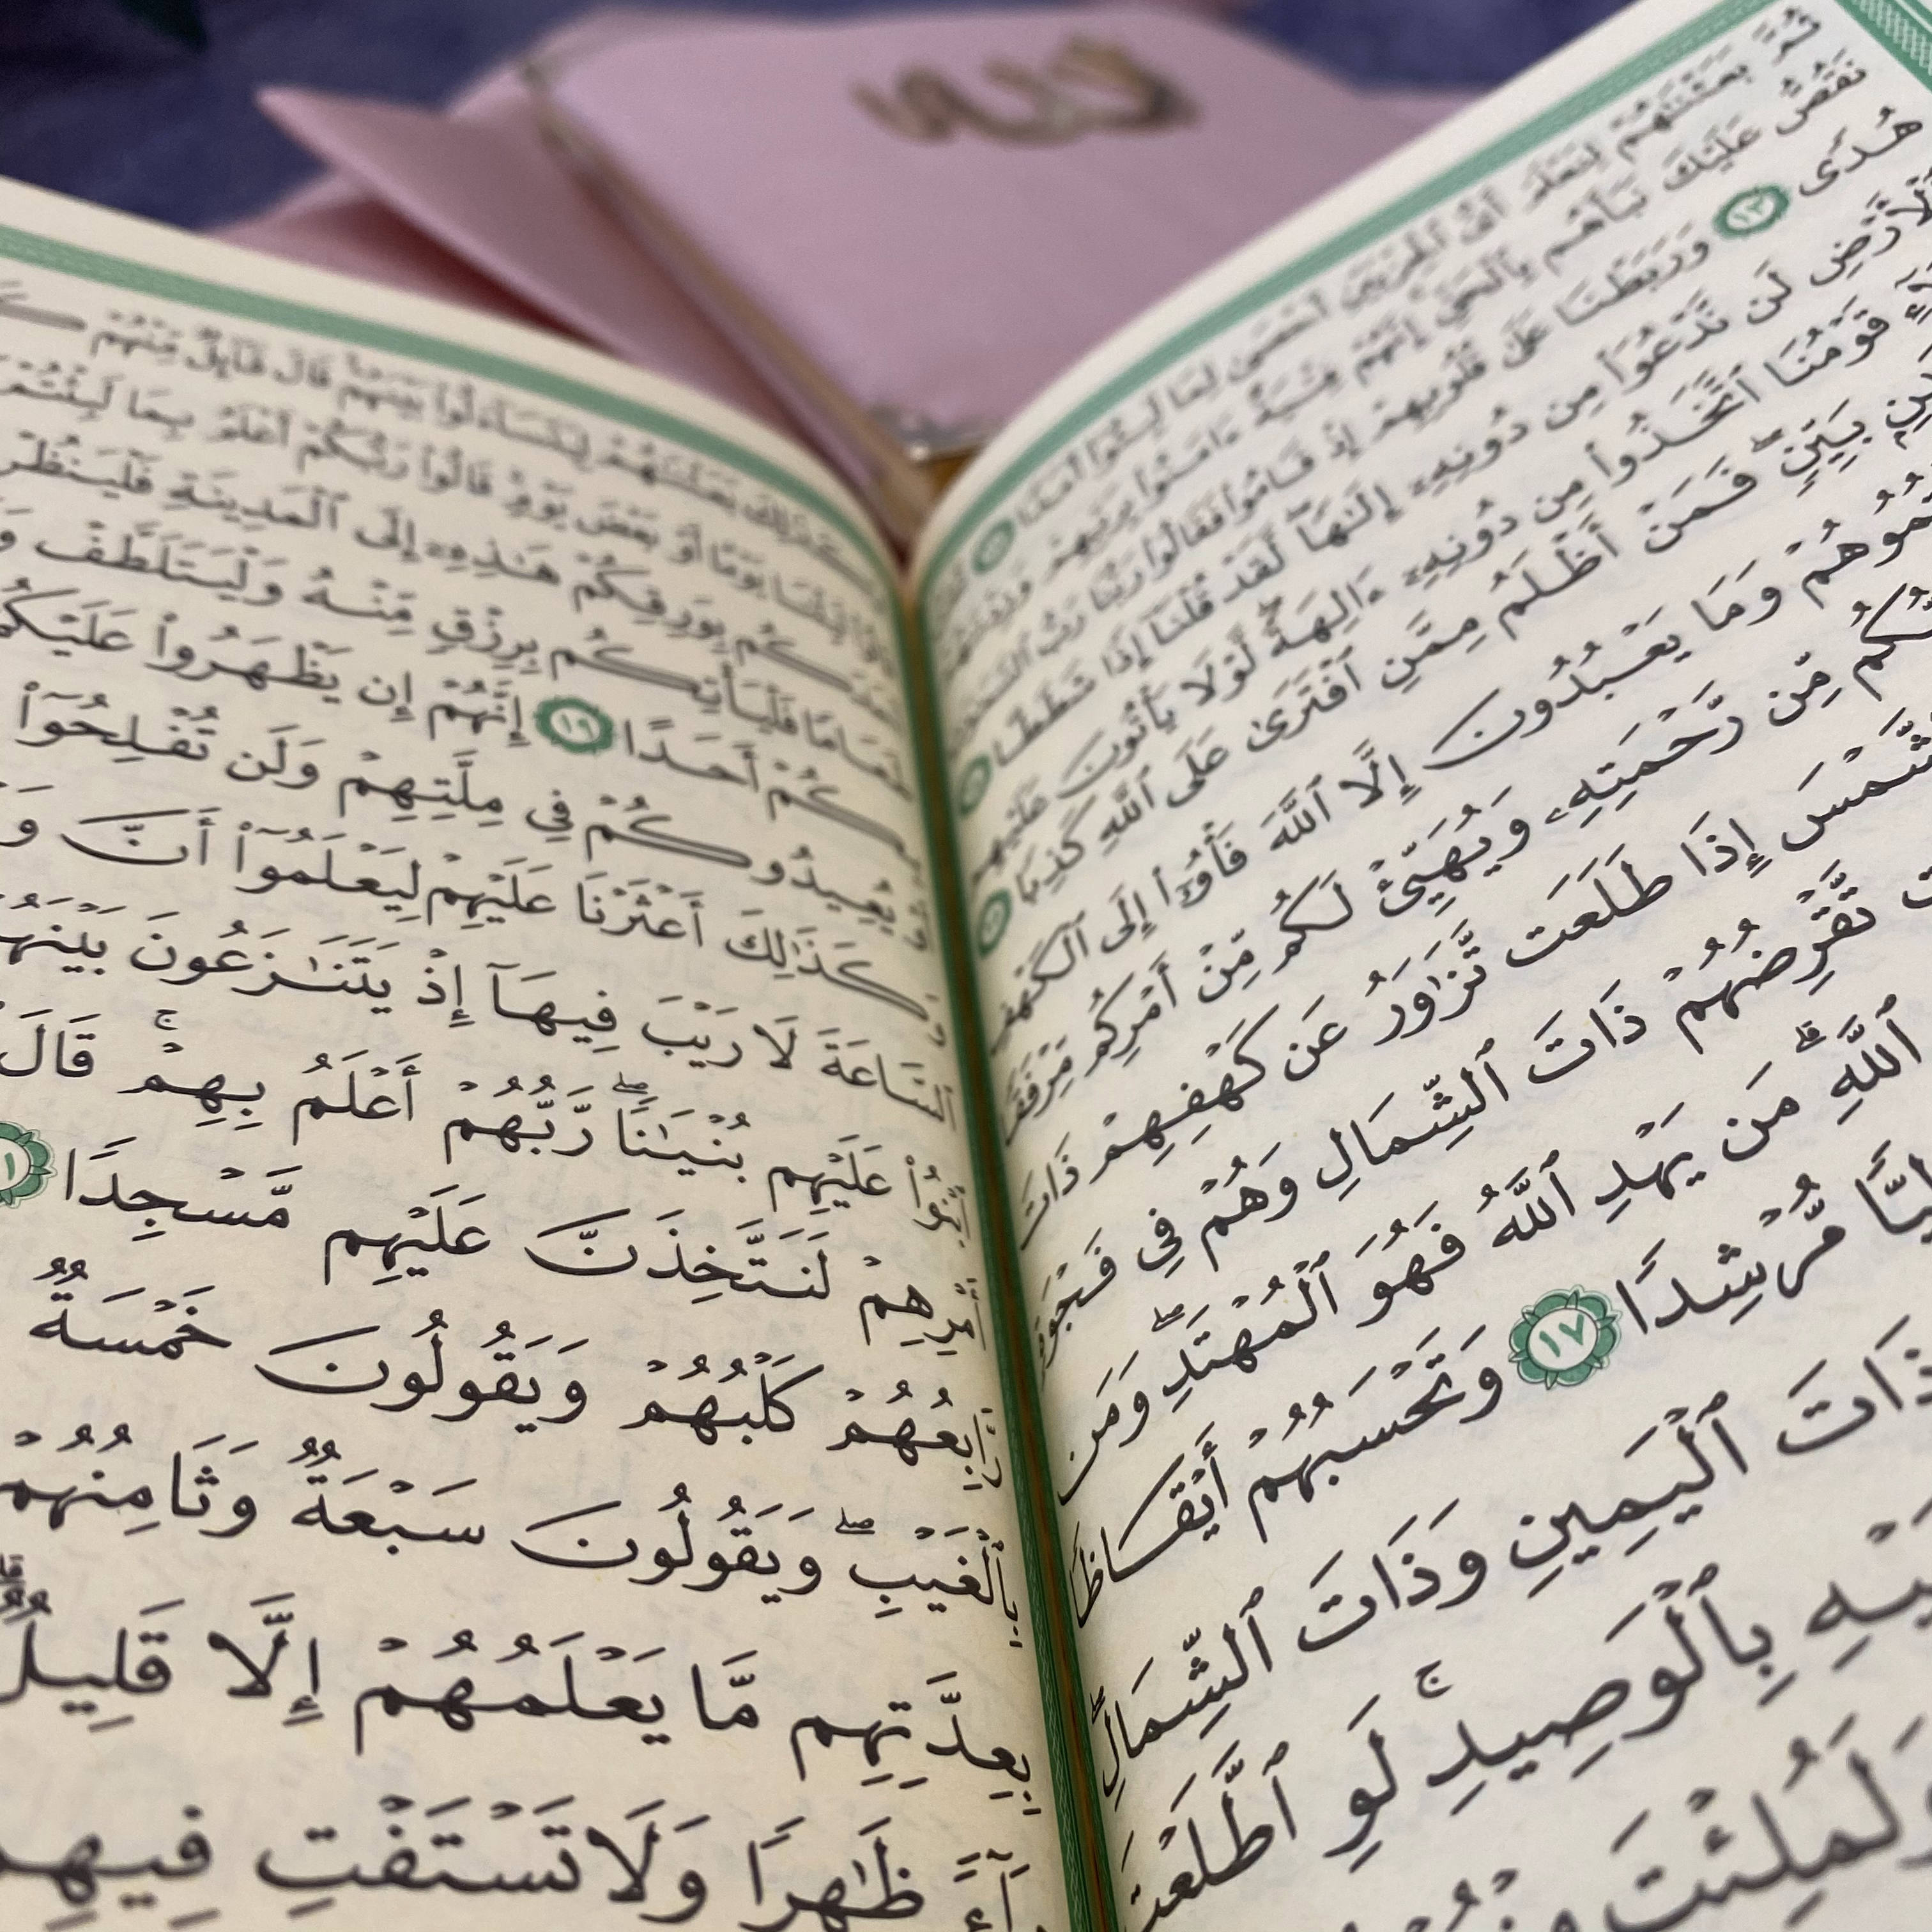 ثُمَّ بَعَثْنَٰهُمْ لِنَعْلَمَ أَىُّ ٱلْحِزْبَيْنِ أَحْصَىٰ لِمَا لَبِثُوٓا۟ أَمَدًا
نَقُصُّ عَلَيْكَ نَبَأَهُم بِٱلْحَقِّ إِنَّهُمْ فِتْيَةٌ ءَامَنُوا۟ بِرَبِّهِمْ وَزِدْنَٰهُمْ
هُدًى ١٣ وَرَبَطْنَا عَلَىٰ قُلُوبِهِمْ إِذْ قَامُوا۟ فَقَالُوا۟ رَبُّنَا رَبُّ
ٱلْأَرْضِ لَن نَّدْعُوَا۟ مِن دُونِهِۦٓ إِلَٰهًا لَّقَدْ قُلْنَآ إِذًا شَطَطًا
قَوْمُنَا ٱتَّخَذُوا۟ مِن دُونِهِۦٓ ءَالِهَةً لَّوْلَا يَأْتُونَ عَلَيْهِم
بَيِّنٍ فَمَنْ أَظْلَمُ مِمَّنِ ٱفْتَرَىٰ عَلَى ٱللَّهِ كَذِبًا
وَمَا يَعْبُدُونَ إِلَّا ٱللَّهَ فَأْوُۥٓا۟ إِلَى ٱلْكَهْفِ
مِّن رَّحْمَتِهِۦ وَيُهَيِّئْ لَكُم مِّنْ أَمْرِكُم مِّرْفَقًا
إِذَا طَلَعَت تَّزَٰوَرُ عَن كَهْفِهِمْ ذَاتَ
تَّقْرِضُهُمْ ذَاتَ ٱلشِّمَالِ وَهُمْ فِى فَجْوَةٍ
ٱللَّهِ مَن يَهْدِ ٱللَّهُ فَهُوَ ٱلْمُهْتَدِ وَمَن
مُّرْشِدًا ١٧ وَتَحْسَبُهُمْ أَيْقَاظًا
ذَاتَ ٱلْيَمِينِ وَذَاتَ ٱلشِّمَالِ
بِٱلْوَصِيدِ لَوِ ٱطَّلَعْتَ
وَلَمُلِئْتَ
كَذَٰلِكَ بَعَثْنَٰهُمْ لِيَتَسَآءَلُوا۟ بَيْنَهُمْ قَالَ قَآئِلٌ مِّنْهُمْ
لَبِثْنَا يَوْمًا أَوْ بَعْضَ يَوْمٍ قَالُوا۟ رَبُّكُمْ أَعْلَمُ بِمَا لَبِثْتُمْ
بِوَرِقِكُمْ هَٰذِهِۦٓ إِلَى ٱلْمَدِينَةِ فَلْيَنظُرْ
طَعَامًا فَلْيَأْتِكُم بِرِزْقٍ مِّنْهُ وَلْيَتَلَطَّفْ
بِكُمْ أَحَدًا ١٩ إِنَّهُمْ إِن يَظْهَرُوا۟ عَلَيْكُمْ
يُعِيدُوكُمْ فِى مِلَّتِهِمْ وَلَن تُفْلِحُوٓا۟
وَكَذَٰلِكَ أَعْثَرْنَا عَلَيْهِمْ لِيَعْلَمُوٓا۟ أَنَّ
ٱلسَّاعَةَ لَا رَيْبَ فِيهَآ إِذْ يَتَنَٰزَعُونَ بَيْنَهُمْ
ٱبْنُوا۟ عَلَيْهِم بُنْيَٰنًا رَّبُّهُمْ أَعْلَمُ بِهِمْ قَالَ
أَمْرِهِمْ لَنَتَّخِذَنَّ عَلَيْهِم مَّسْجِدًا
رَّابِعُهُمْ كَلْبُهُمْ وَيَقُولُونَ خَمْسَةٌ
بِٱلْغَيْبِ وَيَقُولُونَ سَبْعَةٌ وَثَامِنُهُمْ
بِعِدَّتِهِم مَّا يَعْلَمُهُمْ إِلَّا قَلِيلٌ
ظَٰهِرًا وَلَا تَسْتَفْتِ فِيهِم